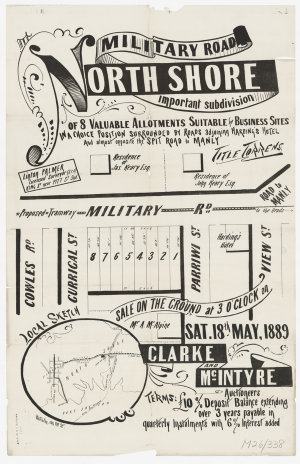 MILITARY ROAD
NORTH SHORE
important subdivision
OF 8 VALUABLE ALLOTMENTS SUITABLE for BUSINESS SITES
IN A CHOICE POSITION SURROUNDED BY ROADS adjoining HARDING'S HOTEL
And almost opposite the SPIT ROAD to MANLY
LINTON PALMER
TITLE TORRENS.
Residence of
Jas. Henry Esq.
Residence of
John Henry Esq.
ROAD to MANLY
Proposed Tramway MILITARY RD
COWLES RD
GURRIGAL ST
8 7 6 5 4 3 2 1
PARRIWI ST
Harding's
Hotel
VIEW ST
SALE ON THE GROUND at 3 O'CLOCK ON
Mr A. McAlpine
SAT. 18TH MAY, 1889
LOCAL SKETCH
CLARKE
AND
McINTYRE
Auctioneers
TERMS: £10 % Deposit Balance extending
over 3 years payable in
quarterly Instalments with 6 % Interest added
M26/338